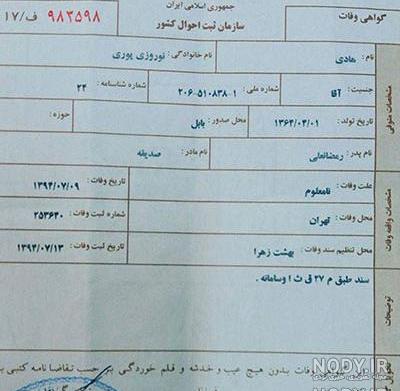 گواهی وفات
جمهوری اسلامی ایران
سازمان ثبت احوال کشور
۹۸۳۵۹۸ ف/۱۷
نام : هادی نام خانوادگی : نوروزی پوری
جنسیت : آقا شماره ملی : ۲۰۶-۵۱۰۸۳۸-۱ شماره شناسنامه : ۲۴
تاریخ تولد : ۱۳۶۴/۰۴/۰۱ محل صدور : بابل حوزه :
نام پدر : رمضانعلی نام مادر : صدیقه
مشخصات متوفی
علت وفات : نامعلوم تاریخ وفات : ۱۳۹۴/۰۷/۰۹
محل وفات : تهران شماره ثبت وفات : ۲۵۳۶۴۰
محل تنظیم سند وفات : بهشت زهرا تاریخ ثبت وفات : ۱۳۹۴/۰۷/۱۳
مشخصات واقعه وفات
سند طبق م ۲۷ ق ث ا وسامانه .
توضیحات
وفات بدون هیچ عیب و خدشه و قلم خوردگی بر حسب تقاضا نامه کتبی
NODY.IR